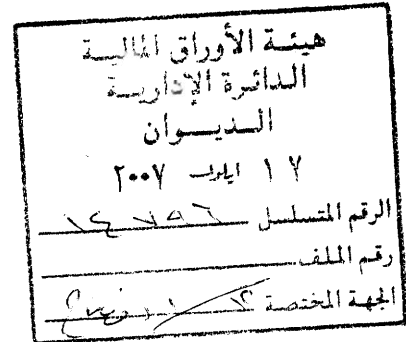 هيئة الأوراق المالية
الدائرة الإدارية
الديوان
١٧ ايلول ٢٠٠٧
الرقم المتسلسل
رقم الملف
الجهة المختصة